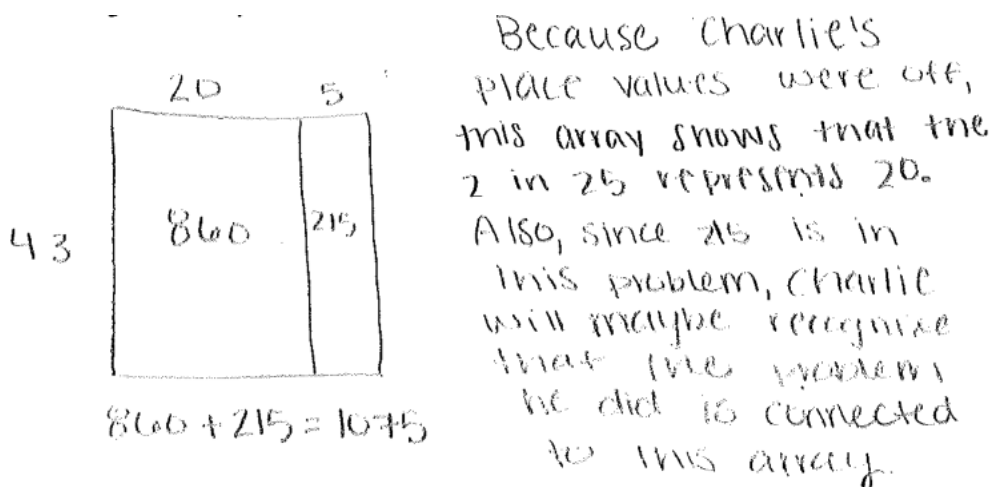 20 5
43 860 215
860 + 215 = 1075
Because Charlie's
place values were off,
this array shows that the
2 in 25 represents 20.
Also, since 215 is in
this problem, Charlie
will maybe recognize
that the problem
he did is connected
to this array.